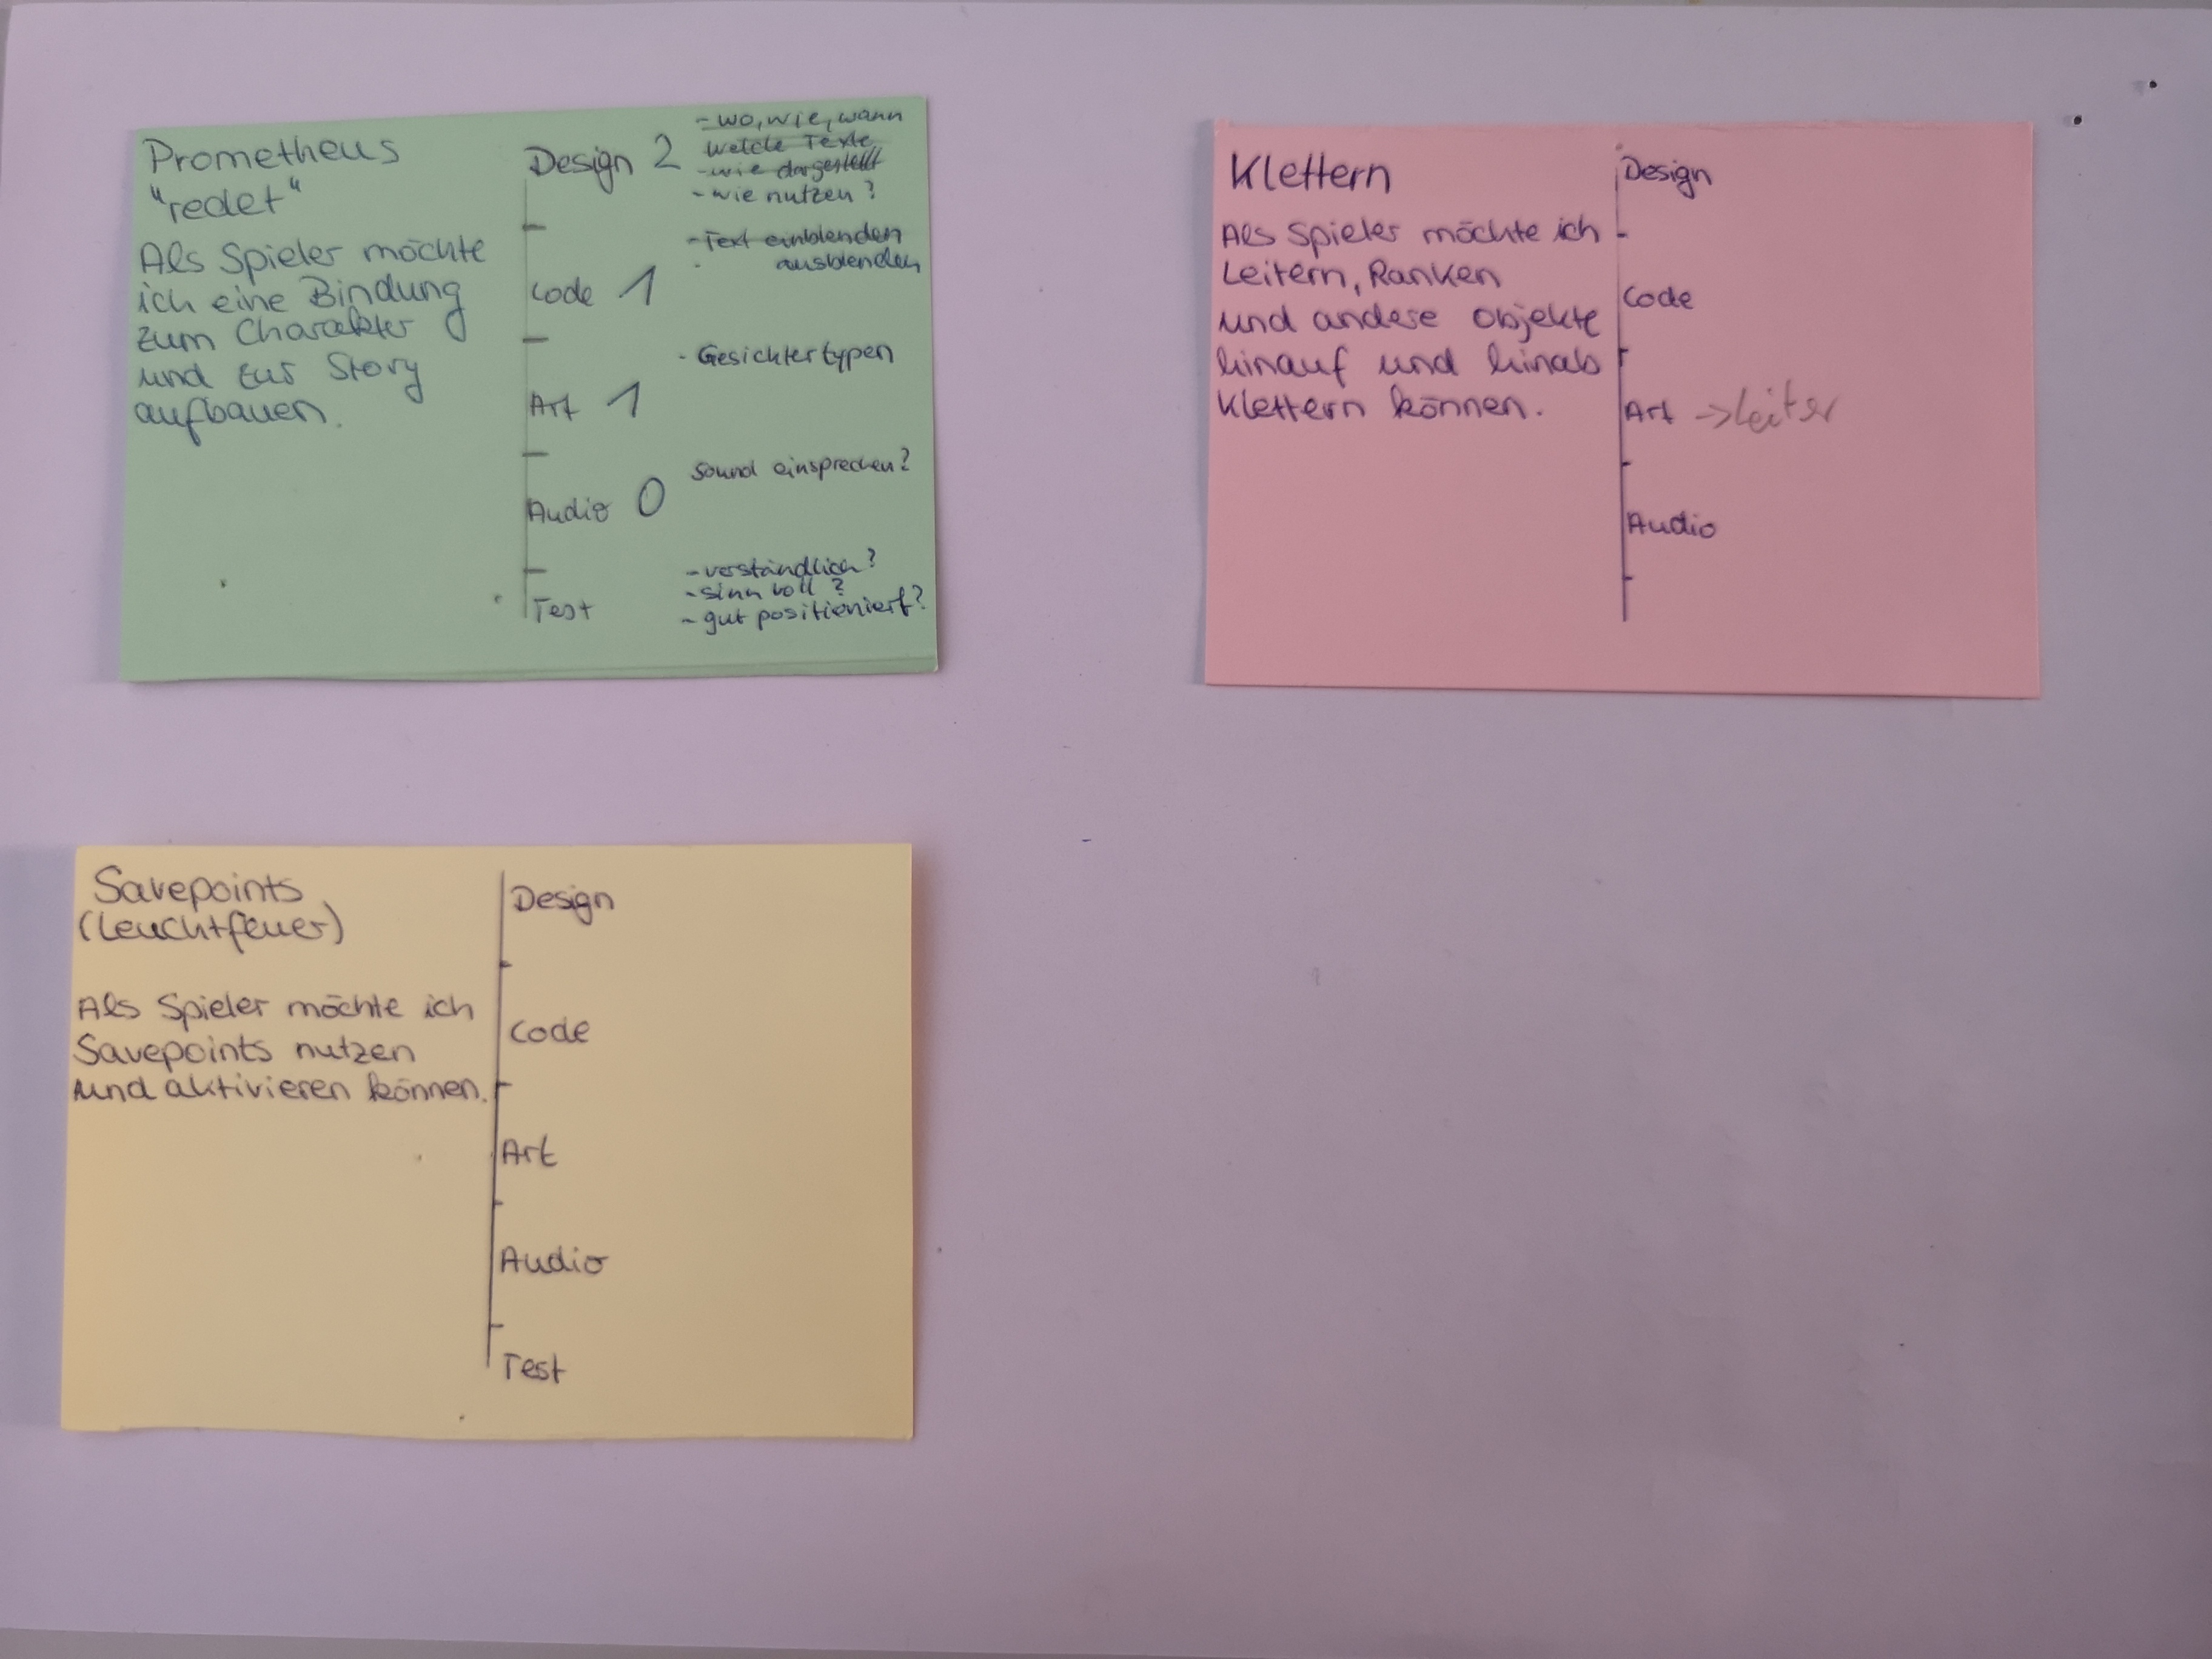 Prometheus
"redet"
Als Spieler möchte
ich eine Bindung
zum Charakter
und zur Story
aufbauen.
Design 2
- wo, wie, wann
welche Texte
- wie dargestellt
- wie nutzen?
Code 1
- Text einblenden
ausblenden
Art 1
- Gesichtertypen
Audio 0
Sound einsprechen?
Test
- verständlich?
- sinnvoll?
- gut positioniert?
Klettern
Als Spieler möchte ich
Leitern, Ranken
und andere Objekte
hinauf und hinab
klettern können.
Design
Code
Art -> Leiter
Audio
Savepoints
(Leuchtfeuer)
Als Spieler möchte ich
Savepoints nutzen
und aktivieren können.
Design
Code
Art
Audio
Test